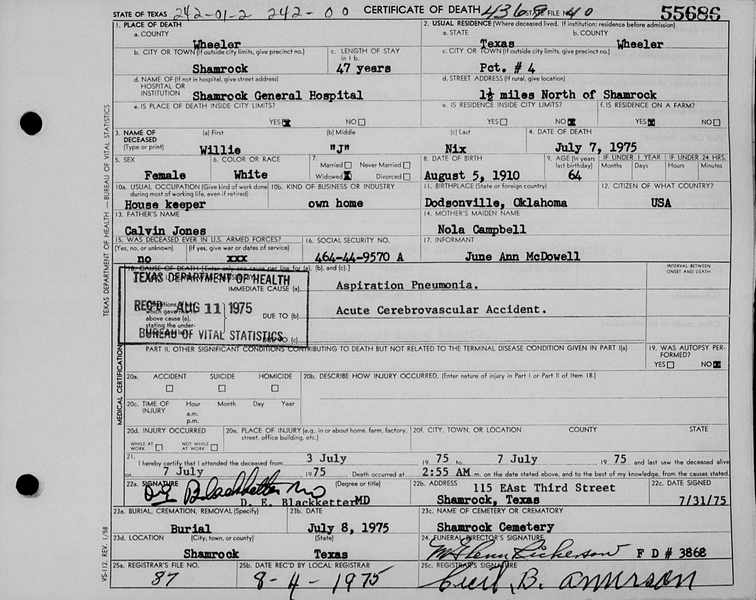 STATE OF TEXAS 242-01-2 242-00 CERTIFICATE OF DEATH STATE FILE NO. 55686
1. PLACE OF DEATH
a. COUNTY
Wheeler
2. USUAL RESIDENCE (Where deceased lived. If institution: residence before admission)
a. STATE b. COUNTY
Texas Wheeler
b. CITY OR TOWN (If outside city limits, give precinct no.) c. LENGTH OF STAY in 1 b.
Shamrock 47 years
c. CITY OR TOWN (If outside city limits, give precinct no.)
Pct. # 4
d. NAME OF (If not in hospital, give street address)
HOSPITAL OR
INSTITUTION Shamrock General Hospital
d. STREET ADDRESS (If rural, give location)
1½ miles North of Shamrock
e. IS PLACE OF DEATH INSIDE CITY LIMITS?
YES NO
e. IS RESIDENCE INSIDE CITY LIMITS?
YES NO
f. IS RESIDENCE ON A FARM?
YES NO
3. NAME OF DECEASED (Type or print) (a) First (b) Middle (c) Last
Willie "J" Nix
4. DATE OF DEATH
July 7, 1975
5. SEX
Female
6. COLOR OR RACE
White
7. Married Never Married
Widowed Divorced
8. DATE OF BIRTH
August 5, 1910
9. AGE (In years last birthday)
64
IF UNDER 1 YEAR
Months Days
IF UNDER 24 HRS.
Hours Minutes
10a. USUAL OCCUPATION (Give kind of work done during most of working life, even if retired)
House keeper
10b. KIND OF BUSINESS OR INDUSTRY
own home
11. BIRTHPLACE (State or foreign country)
Dodsonville, Oklahoma
12. CITIZEN OF WHAT COUNTRY?
USA
13. FATHER'S NAME
Calvin Jones
14. MOTHER'S MAIDEN NAME
Nola Campbell
15. WAS DECEASED EVER IN U.S. ARMED FORCES?
(Yes, no, or unknown) (If yes, give war or dates of service)
no xxx
16. SOCIAL SECURITY NO.
464-44-9570 A
17. INFORMANT
June Ann McDowell
18. CAUSE OF DEATH (Enter only one cause per line for (a), (b), and (c).)
INTERVAL BETWEEN ONSET AND DEATH
TEXAS DEPARTMENT OF HEALTH
REC'D AUG 11 1975
BUREAU OF VITAL STATISTICS
IMMEDIATE CAUSE (a) Aspiration Pneumonia.
DUE TO (b) Acute Cerebrovascular Accident.
DUE TO (c)
PART II. OTHER SIGNIFICANT CONDITIONS CONTRIBUTING TO DEATH BUT NOT RELATED TO THE TERMINAL DISEASE CONDITION GIVEN IN PART I(a)
19. WAS AUTOPSY PERFORMED?
YES NO
20a. ACCIDENT SUICIDE HOMICIDE
20b. DESCRIBE HOW INJURY OCCURRED. (Enter nature of injury in Part I or Part II of Item 18.)
20c. TIME OF INJURY Hour Month Day Year
a.m.
p.m.
20d. INJURY OCCURRED
WHILE AT WORK NOT WHILE AT WORK
20e. PLACE OF INJURY (e.g., in or about home, farm, factory, street, office building, etc.)
20f. CITY, TOWN, OR LOCATION COUNTY STATE
21. I hereby certify that I attended the deceased from 3 July 1975 to 7 July 1975 and last saw the deceased alive
on 7 July 1975 Death occurred at 2:55 AM m. on the date stated above, and to the best of my knowledge, from the causes stated.
22a. SIGNATURE (Degree or title)
D. E. Blackketter MD
22b. ADDRESS
115 EAst Third Street
Shamrock, Texas
22c. DATE SIGNED
7/31/75
23a. BURIAL, CREMATION, REMOVAL (Specify)
Burial
23b. DATE
July 8, 1975
23c. NAME OF CEMETERY OR CREMATORY
Shamrock Cemetery
23d. LOCATION (City, town, or county) (State)
Shamrock Texas
24. FUNERAL DIRECTOR'S SIGNATURE
F D # 3868
25a. REGISTRAR'S FILE NO.
87
25b. DATE REC'D BY LOCAL REGISTRAR
8-4-1975
25c. REGISTRAR'S SIGNATURE
Cecil B.
TEXAS DEPARTMENT OF HEALTH — BUREAU OF VITAL STATISTICS
MEDICAL CERTIFICATION
VS-112, REV. 1/58